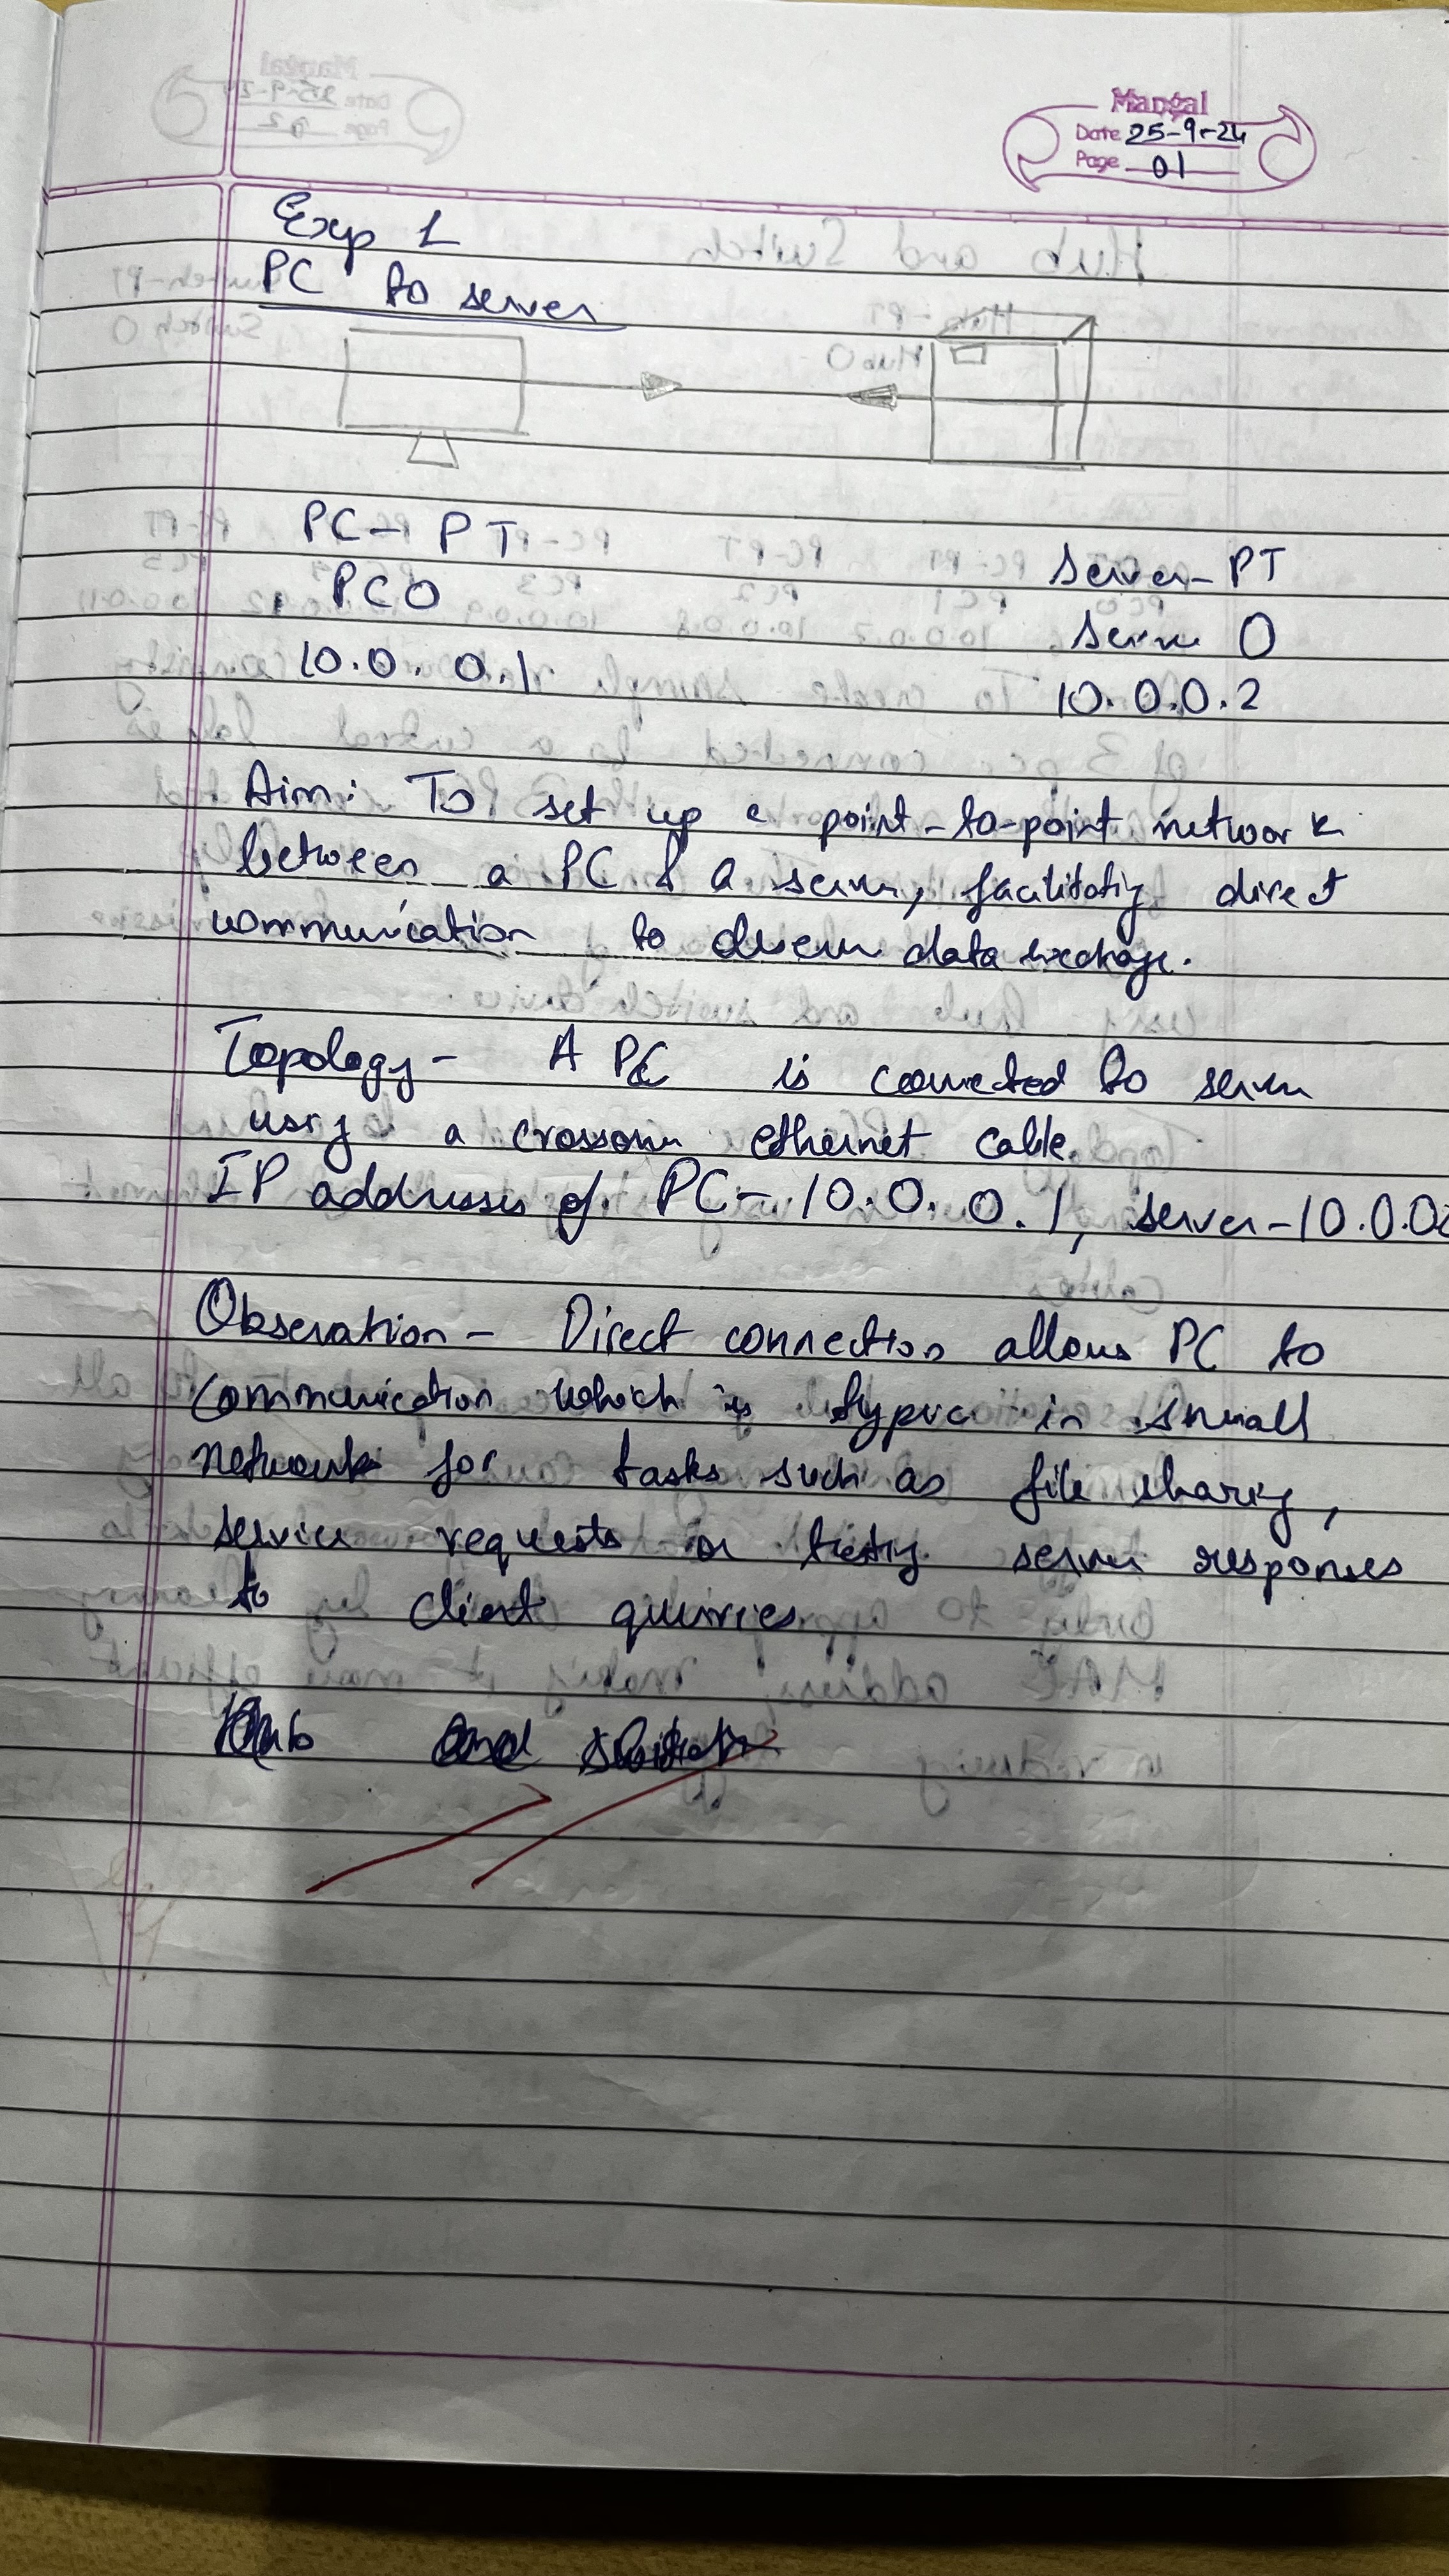 Mangal
Date 25-9-24
Page 01
Exp 1
PC to server
PC-PT
Server-PT
PC0
Serve 0
10.0.0.1
10.0.0.2
Aim: To set up a point-to-point network
between a PC & a server, facilitating direct
communication to observe data exchange.
Topology- A PC is connected to server
using a crossover ethernet cable.
IP addresses of PC-10.0.0.1, server-10.0.02
Observation- Direct connection allows PC to
communication which is typica in small
network for tasks such as file sharing,
service requests or testing server responses
to client queiries